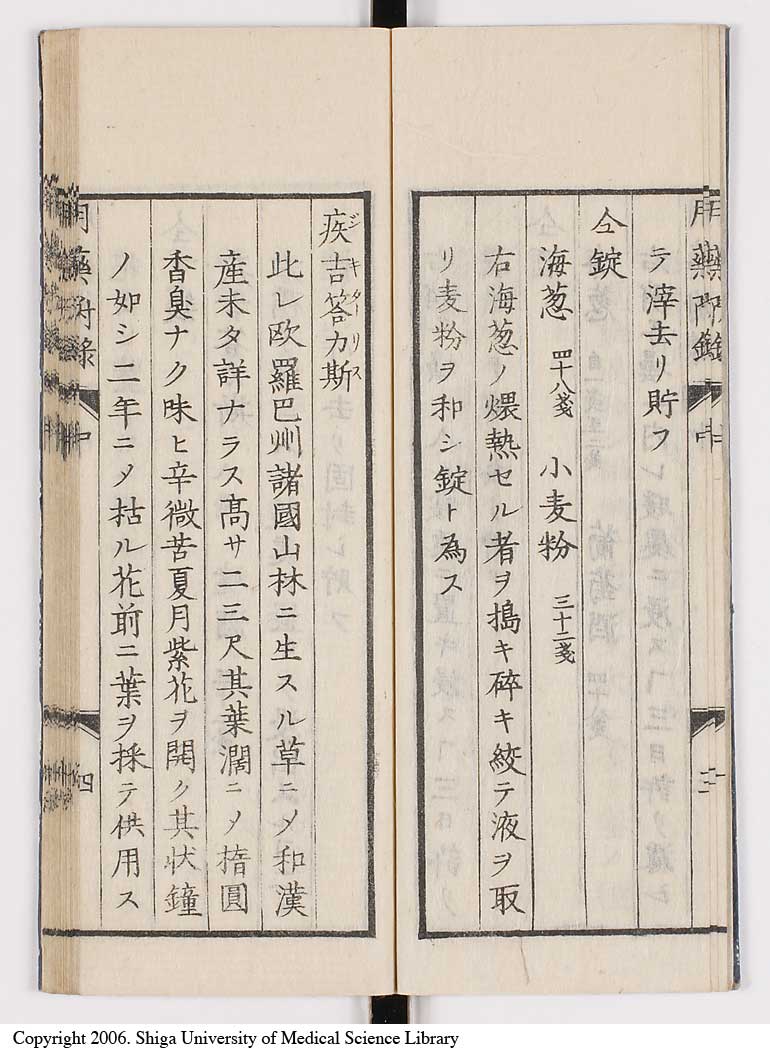 テ滓去リ貯フ
仝錠
海葱 四十八戔 小麦粉 三十二戔
右海葱ノ煨熱セル者ヲ搗キ碎キ絞テ液ヲ取
リ麦粉ヲ和シ錠ト為ス
疾吉答力斯 ジキターリス
此レ欧羅巴州諸國山林ニ生スル草ニメ和漢
産未タ詳ナラス髙サ二三尺其葉濶ニメ楕圓
香臭ナク味ヒ辛微苦夏月紫花ヲ開ク其状鐘
ノ如シ二年ニメ枯ル花前ニ葉ヲ採テ供用ス
Copyright 2006. Shiga University of Medical Science Library